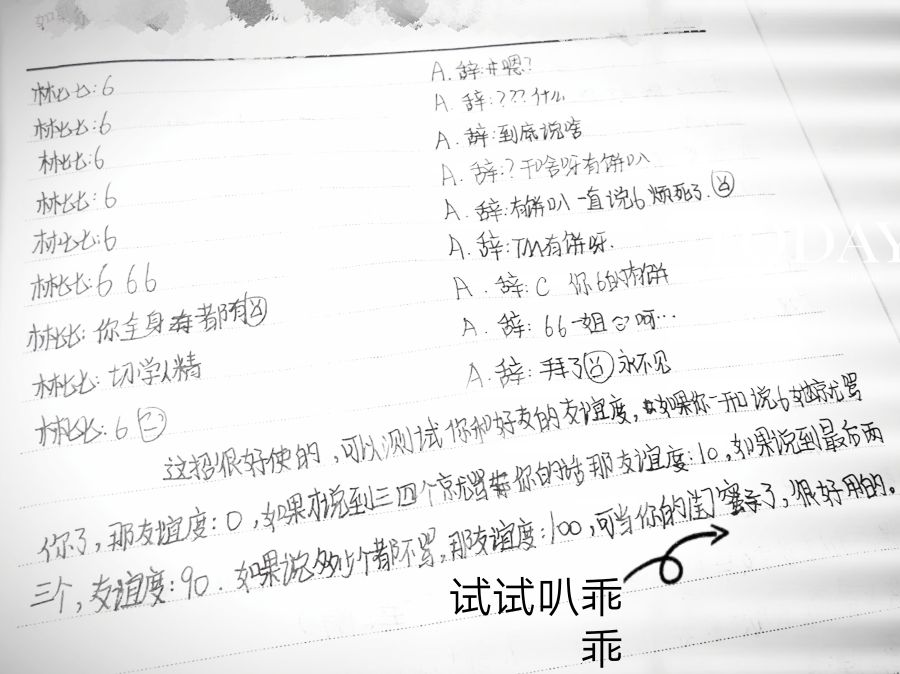 林匕匕:6
A.辞:嗯?
林匕匕:6
A.辞:???什么
林匕匕:6
A.辞:到底说啥
林匕匕:6
A.辞:?干啥呀有餅叭
林匕匕:6
A.辞:有餅叭一直说6烦死了.
林匕匕:6 66
A.辞:TM有餅呀.
林匕匕:你全身都有
A.辞:C 你6的有餅
林匕匕:切学人精
A.辞:66一姐 呵…
林匕匕:6
A.辞:拜了 永不见
这招很好使的,可以测试你和好友的友谊度,如果你一开口说6她就骂
你了,那友谊度:0,如果才说到三四个就骂你的话那友谊度:10,如果说到最后两
三个,友谊度:90.如果说多少个都不骂,那友谊度:100,可当你的闺蜜了,很好用的。
TODAY
试试叭乖
乖